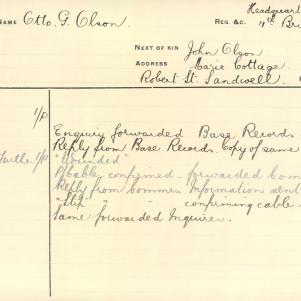 Headquart
NAME Otto. G. Olson. REG. &C. 11th Bri
NEXT OF KIN John Olson
ADDRESS Mazie Cottage
Robert St. Sandwell.
1/P
Enquiry forwarded Base Records
Reply from Base Records. Copy of same
1/P "Wounded"
Cable confirmed - forwarded Com
Reply from Commrs Information sent
" " confirming cable
Same forwarded Inquirer.